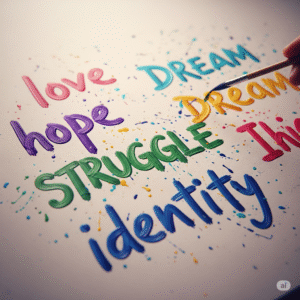 love DREAM
hope Dream
STRUGGLE
identity
ai